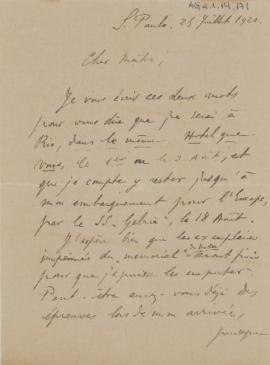 AG 2.1.14.171
S. Paulo, 25 Juillet 1920.
Cher Maître,
Je vous écris ces deux mots
pour vous dire que je serai à
Rio, dans le même Hotel que
vous, le 1er ou le 3 Août, et
que je compte y rester jusqu'à
mon embarquement pour l'Europe,
par le SS. "Gelria", le 18 Août.
J'espère bien que les exemplaires
imprimés du "memorial" seront prêts
pour que je puisse les emporter
Peut-être aurez-vous déjà des
épreuves lors de mon arrivée,